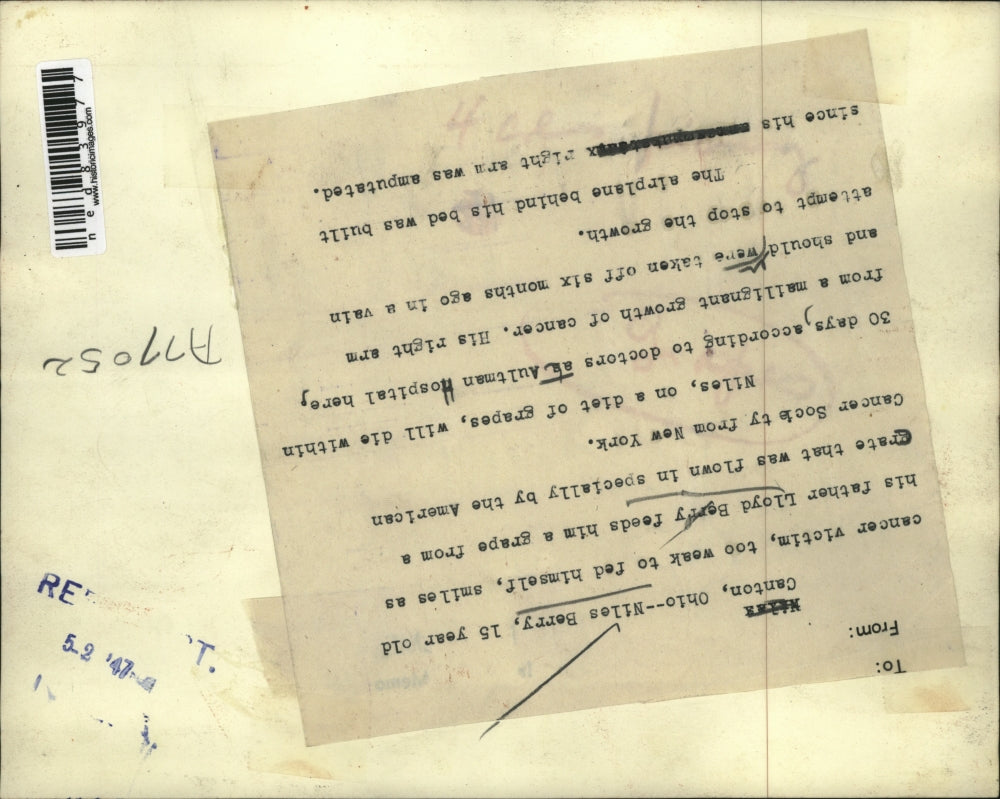 To:
From:
Canton, Ohio--Niles Berry, 15 year old
cancer victim, too weak to fed himself, smiles as
his father Lloyd Berry feeds him a grape from a
crate that was flown in specially by the American
Cancer Society from New York.
Niles, on a diet of grapes, will die within
30 days, according to doctors at Aultman Hospital here,
from a mallignant growth of cancer. His right arm
and should were taken off six months ago in a vain
attempt to stop the growth.
The airplane behind his bed was built
since his right arm was amputated.
Memo
A77052
5-2 '47
ned83977
www.historicimages.com